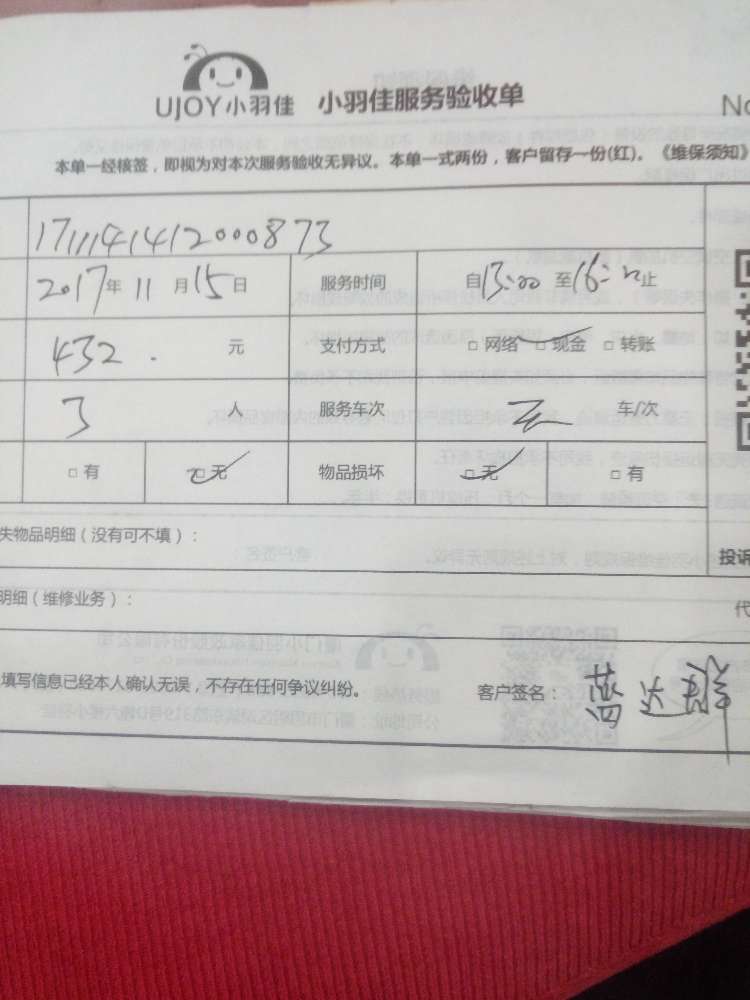 UJOY小羽佳 小羽佳服务验收单 No
本单一经核签，即视为对本次服务验收无异议。本单一式两份，客户留存一份(红)。《维保须知》
1711141412000873
2017年 11 月 15 日 服务时间 自 13:00 至 16: 止
432 . 元 支付方式 □ 网络 □ 现金 □ 转账
3 人 服务车次 车/次
□ 有 □ 无 物品损坏 □ 无 □ 有
失物品明细（没有可不填）：
投诉
明细（维修业务）：
代
填写信息已经本人确认无误，不存在任何争议纠纷。 客户签名： 蓝达群